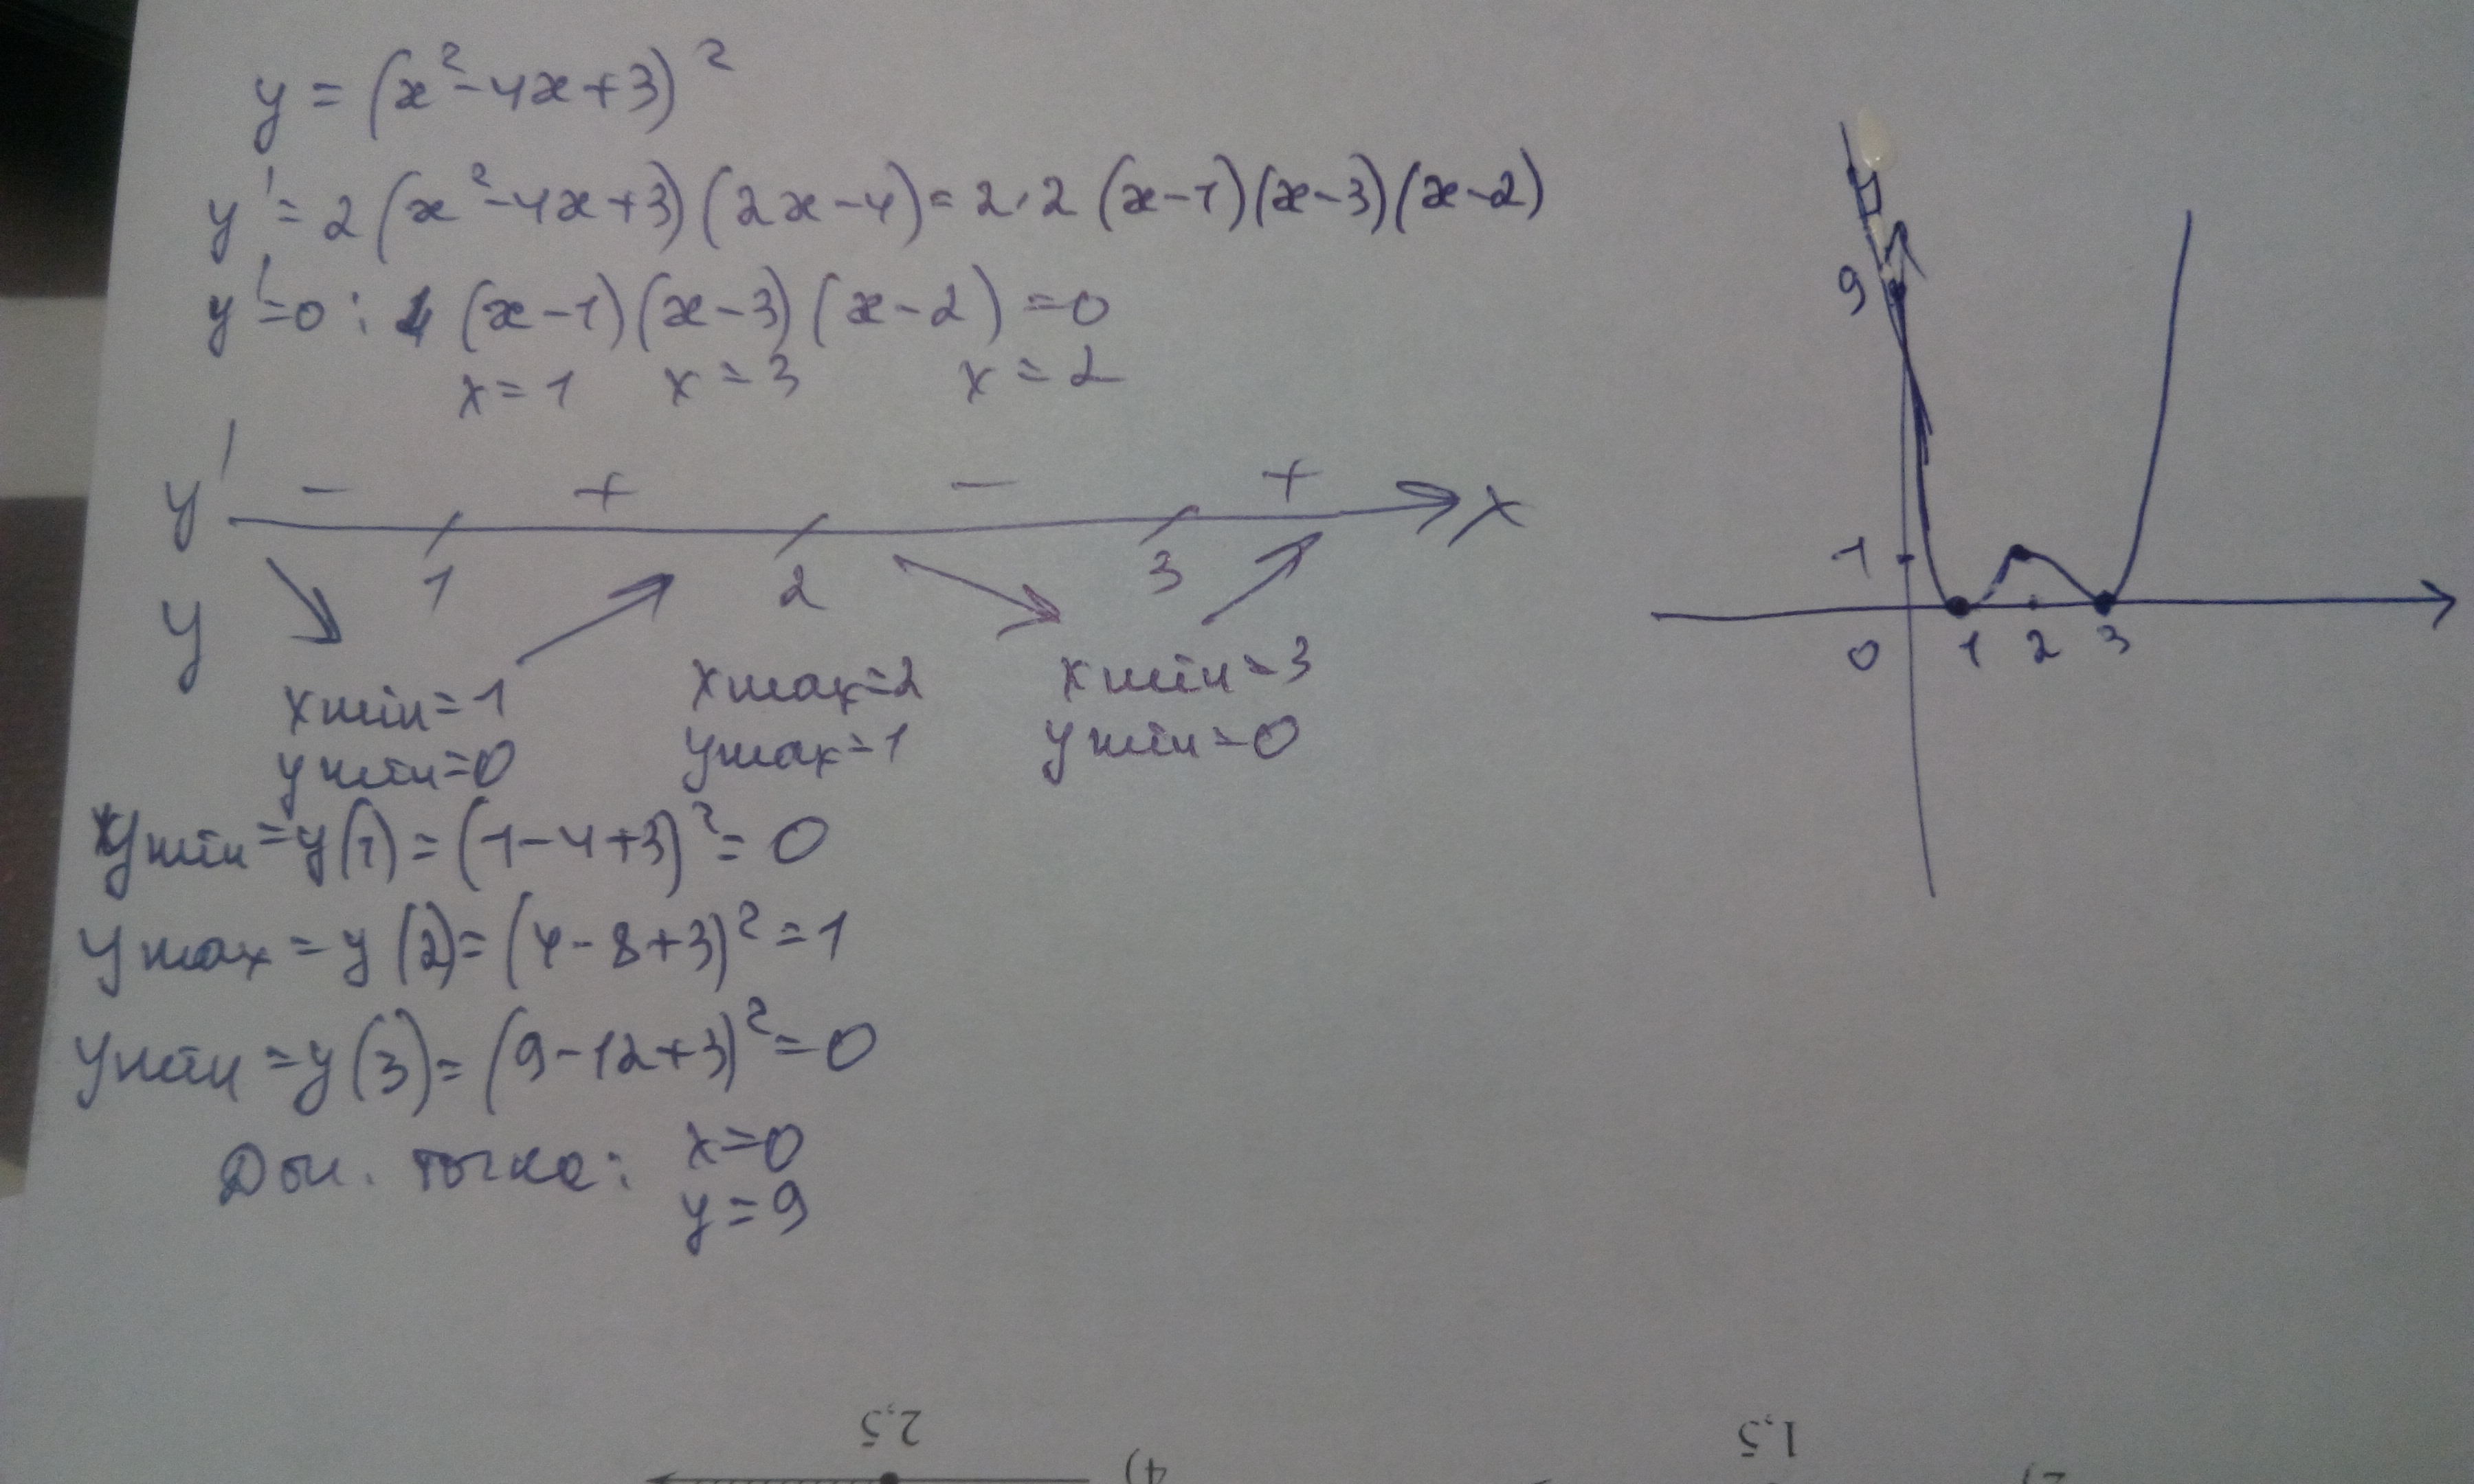 y = (x² - 4x + 3)²
y' = 2(x² - 4x + 3)(2x - 4) = 2·2(x-1)(x-3)(x-2)
y' = 0: 4(x-1)(x-3)(x-2) = 0
x = 1 x = 3 x = 2
y' - + - + x
1 2 3
y
xmin = 1 xmax = 2 xmin = 3
ymin = 0 ymax = 1 ymin = 0
ymin = y(1) = (1 - 4 + 3)² = 0
ymax = y(2) = (4 - 8 + 3)² = 1
ymin = y(3) = (9 - 12 + 3)² = 0
Доп. точка: x = 0
y = 9
9
1
0 1 2 3
2,5
4)
1,5
2)